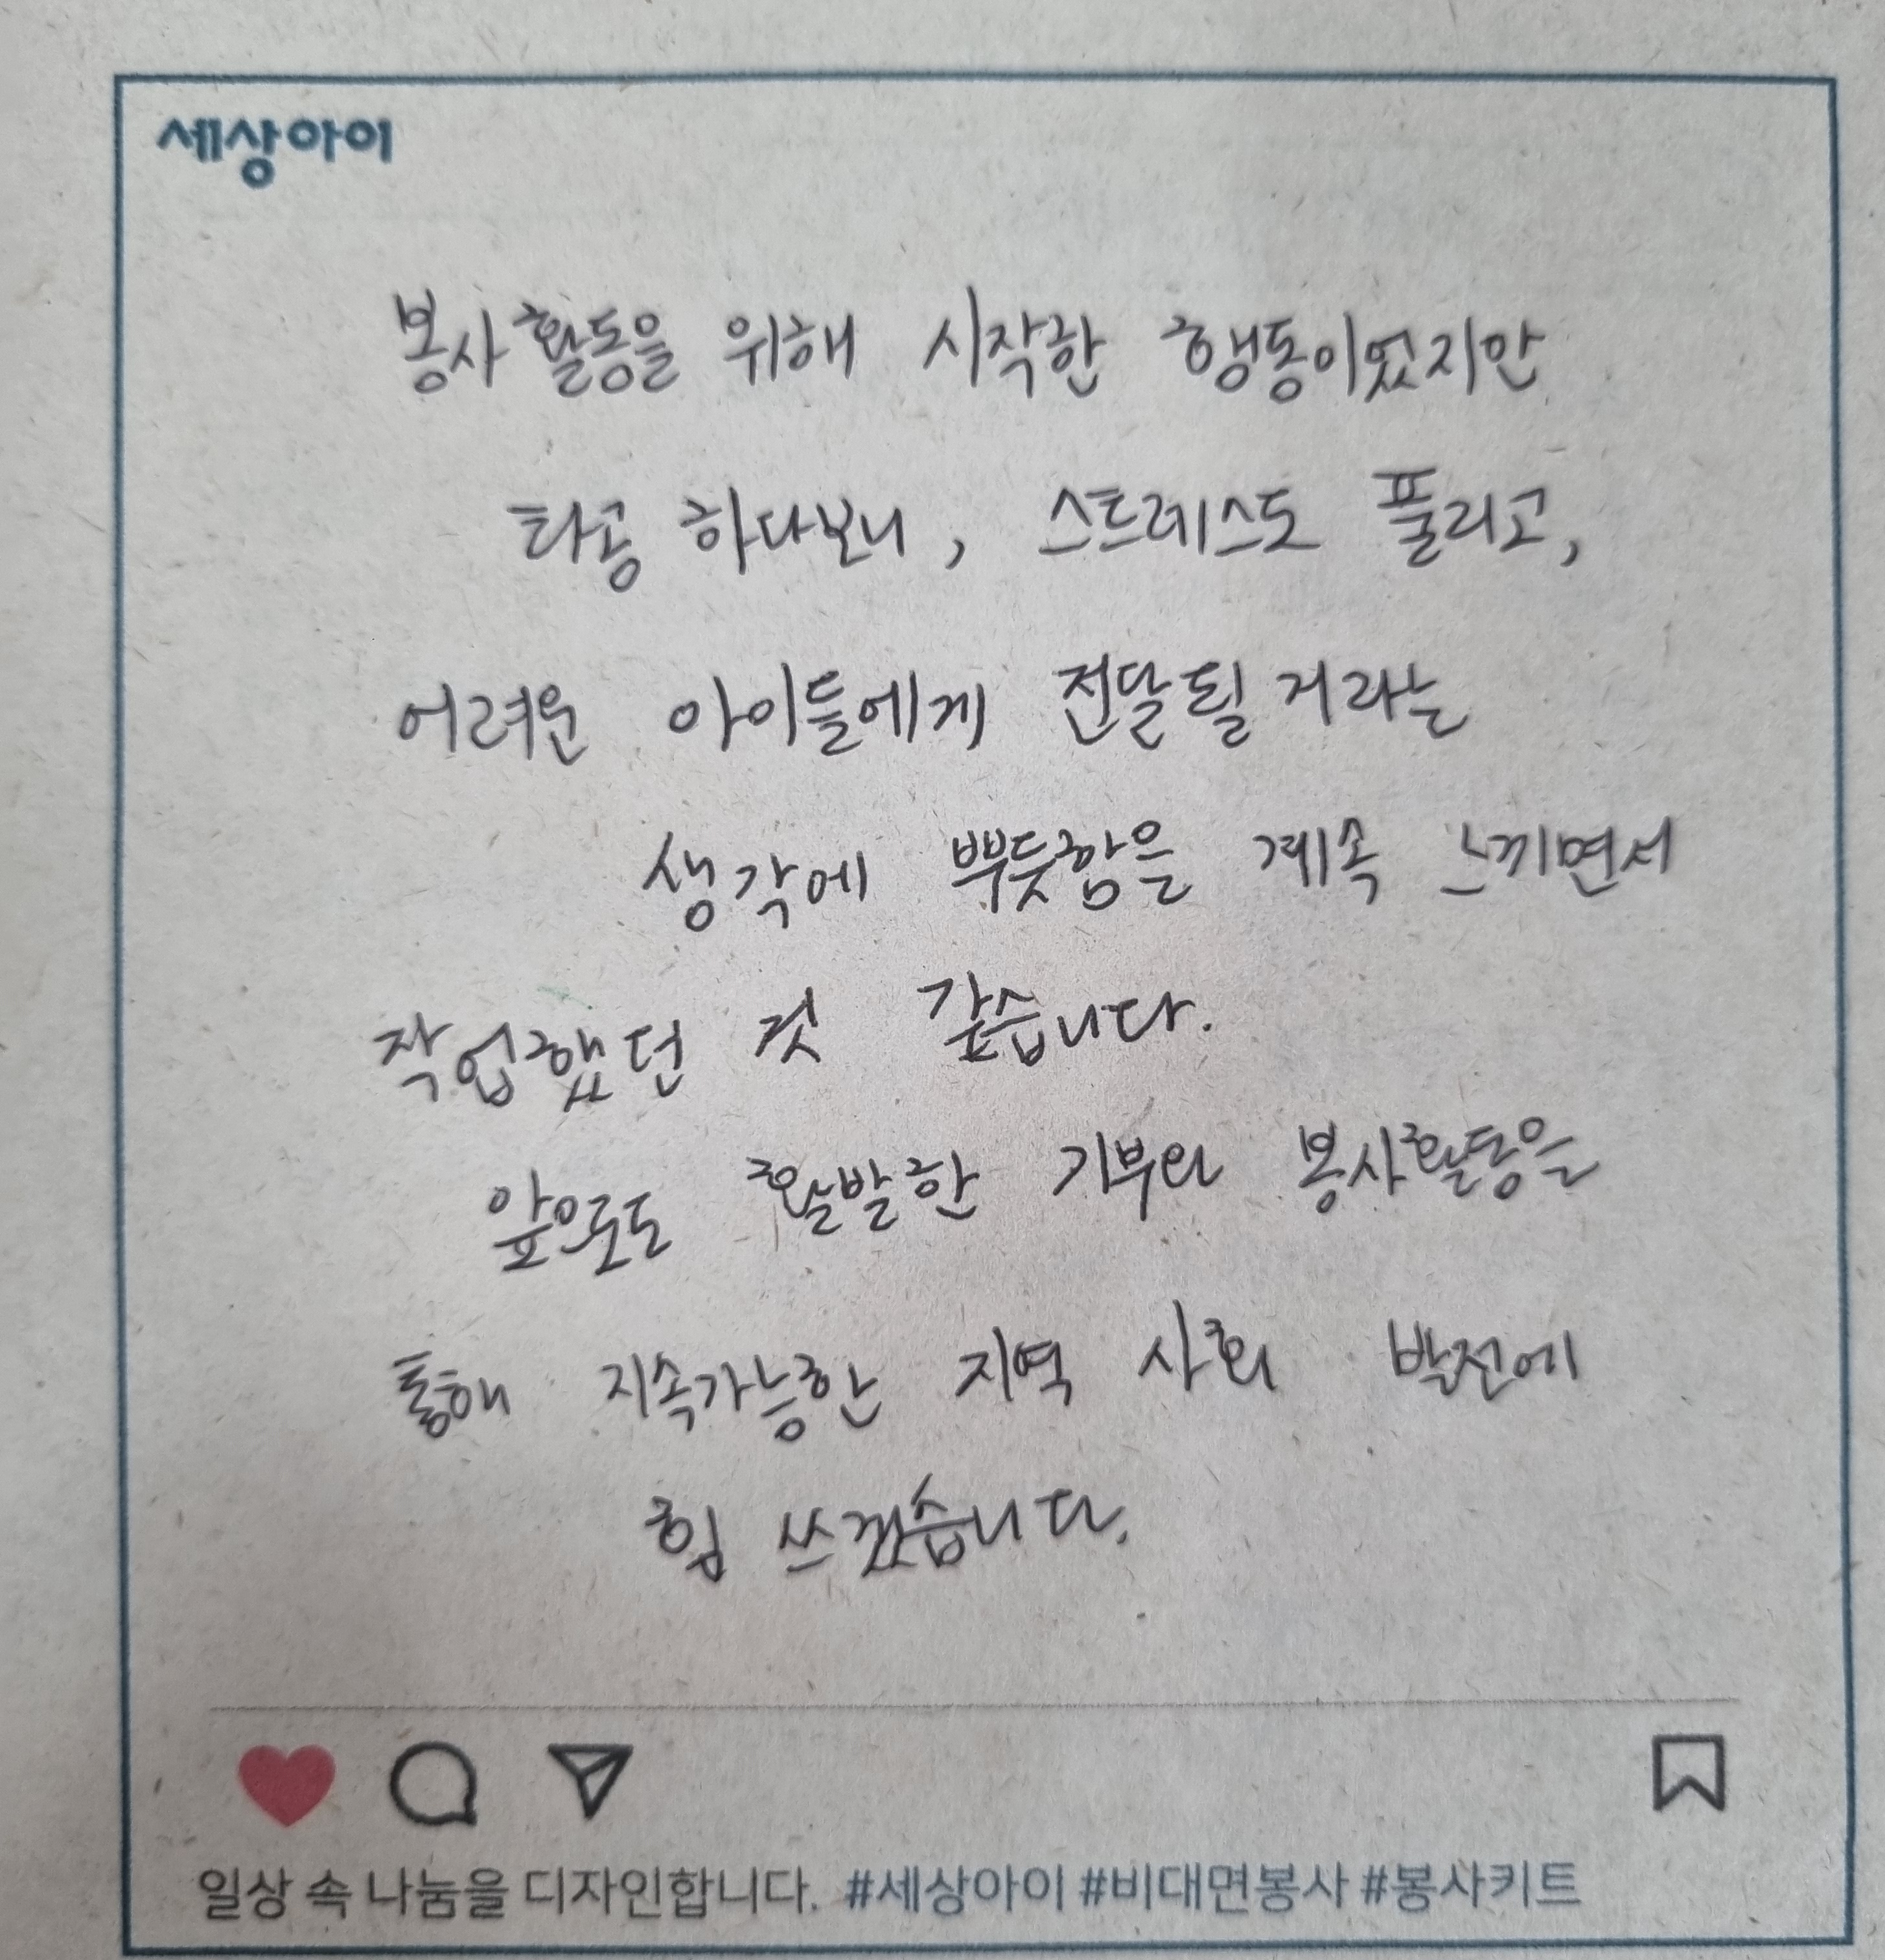 세상아이
봉사활동을 위해 시작한 행동이었지만
타공 하다보니, 스트레스도 풀리고,
어려운 아이들에게 전달될거라는
생각에 뿌듯함을 계속 느끼면서
작업했던 것 같습니다.
앞으로도 활발한 기부와 봉사활동을
통해 지속가능한 지역 사회 발전에
힘 쓰겠습니다.
일상 속 나눔을 디자인합니다. #세상아이 #비대면봉사 #봉사키트